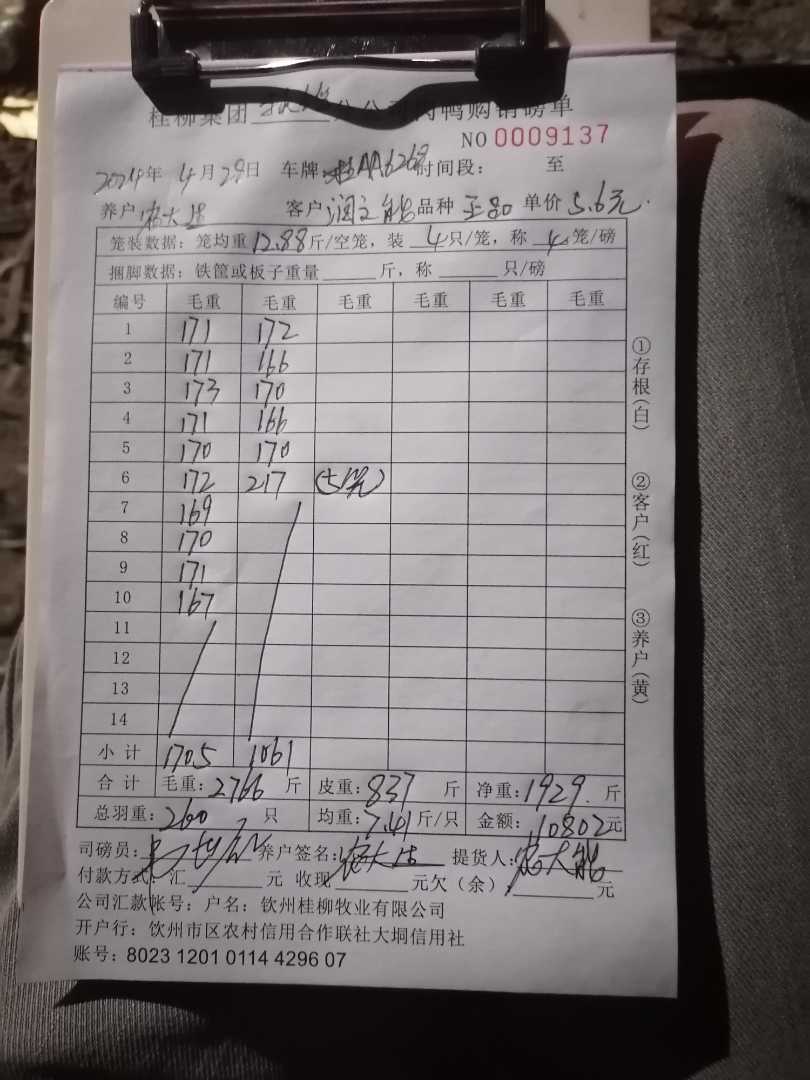 桂柳集团 分公司肉鸭购销磅单
NO 0009137
2024年 4月29日 车牌:桂AA6268 时间段: 至
养户 客户 品种 单价 5.6元.
笼装数据:笼均重 12.88 斤/空笼,装 4 只/笼,称 4 笼/磅
捆脚数据:铁筐或板子重量 斤,称 只/磅
编号 毛重 毛重 毛重 毛重 毛重
1 171 172
2 171 166
3 173 170
4 171 166
5 170 170
6 172 217 (5笼)
7 169
8 170
9 171
10 167
11
12
13
14
小 计 1705 1061
合 计 毛重:2766 斤 皮重:837 斤 净重:1929 斤
总羽重:260 只 均重:7.41 斤/只 金额:10802元
司磅员: 养户签名: 提货人:
付款方式:汇 元 收现 元欠(余) 元
公司汇款帐号:户名:钦州桂柳牧业有限公司
开户行:钦州市区农村信用合作联社大垌信用社
账号:8023 1201 0114 4296 07
①存根(白)
②客户(红)
③养户(黄)